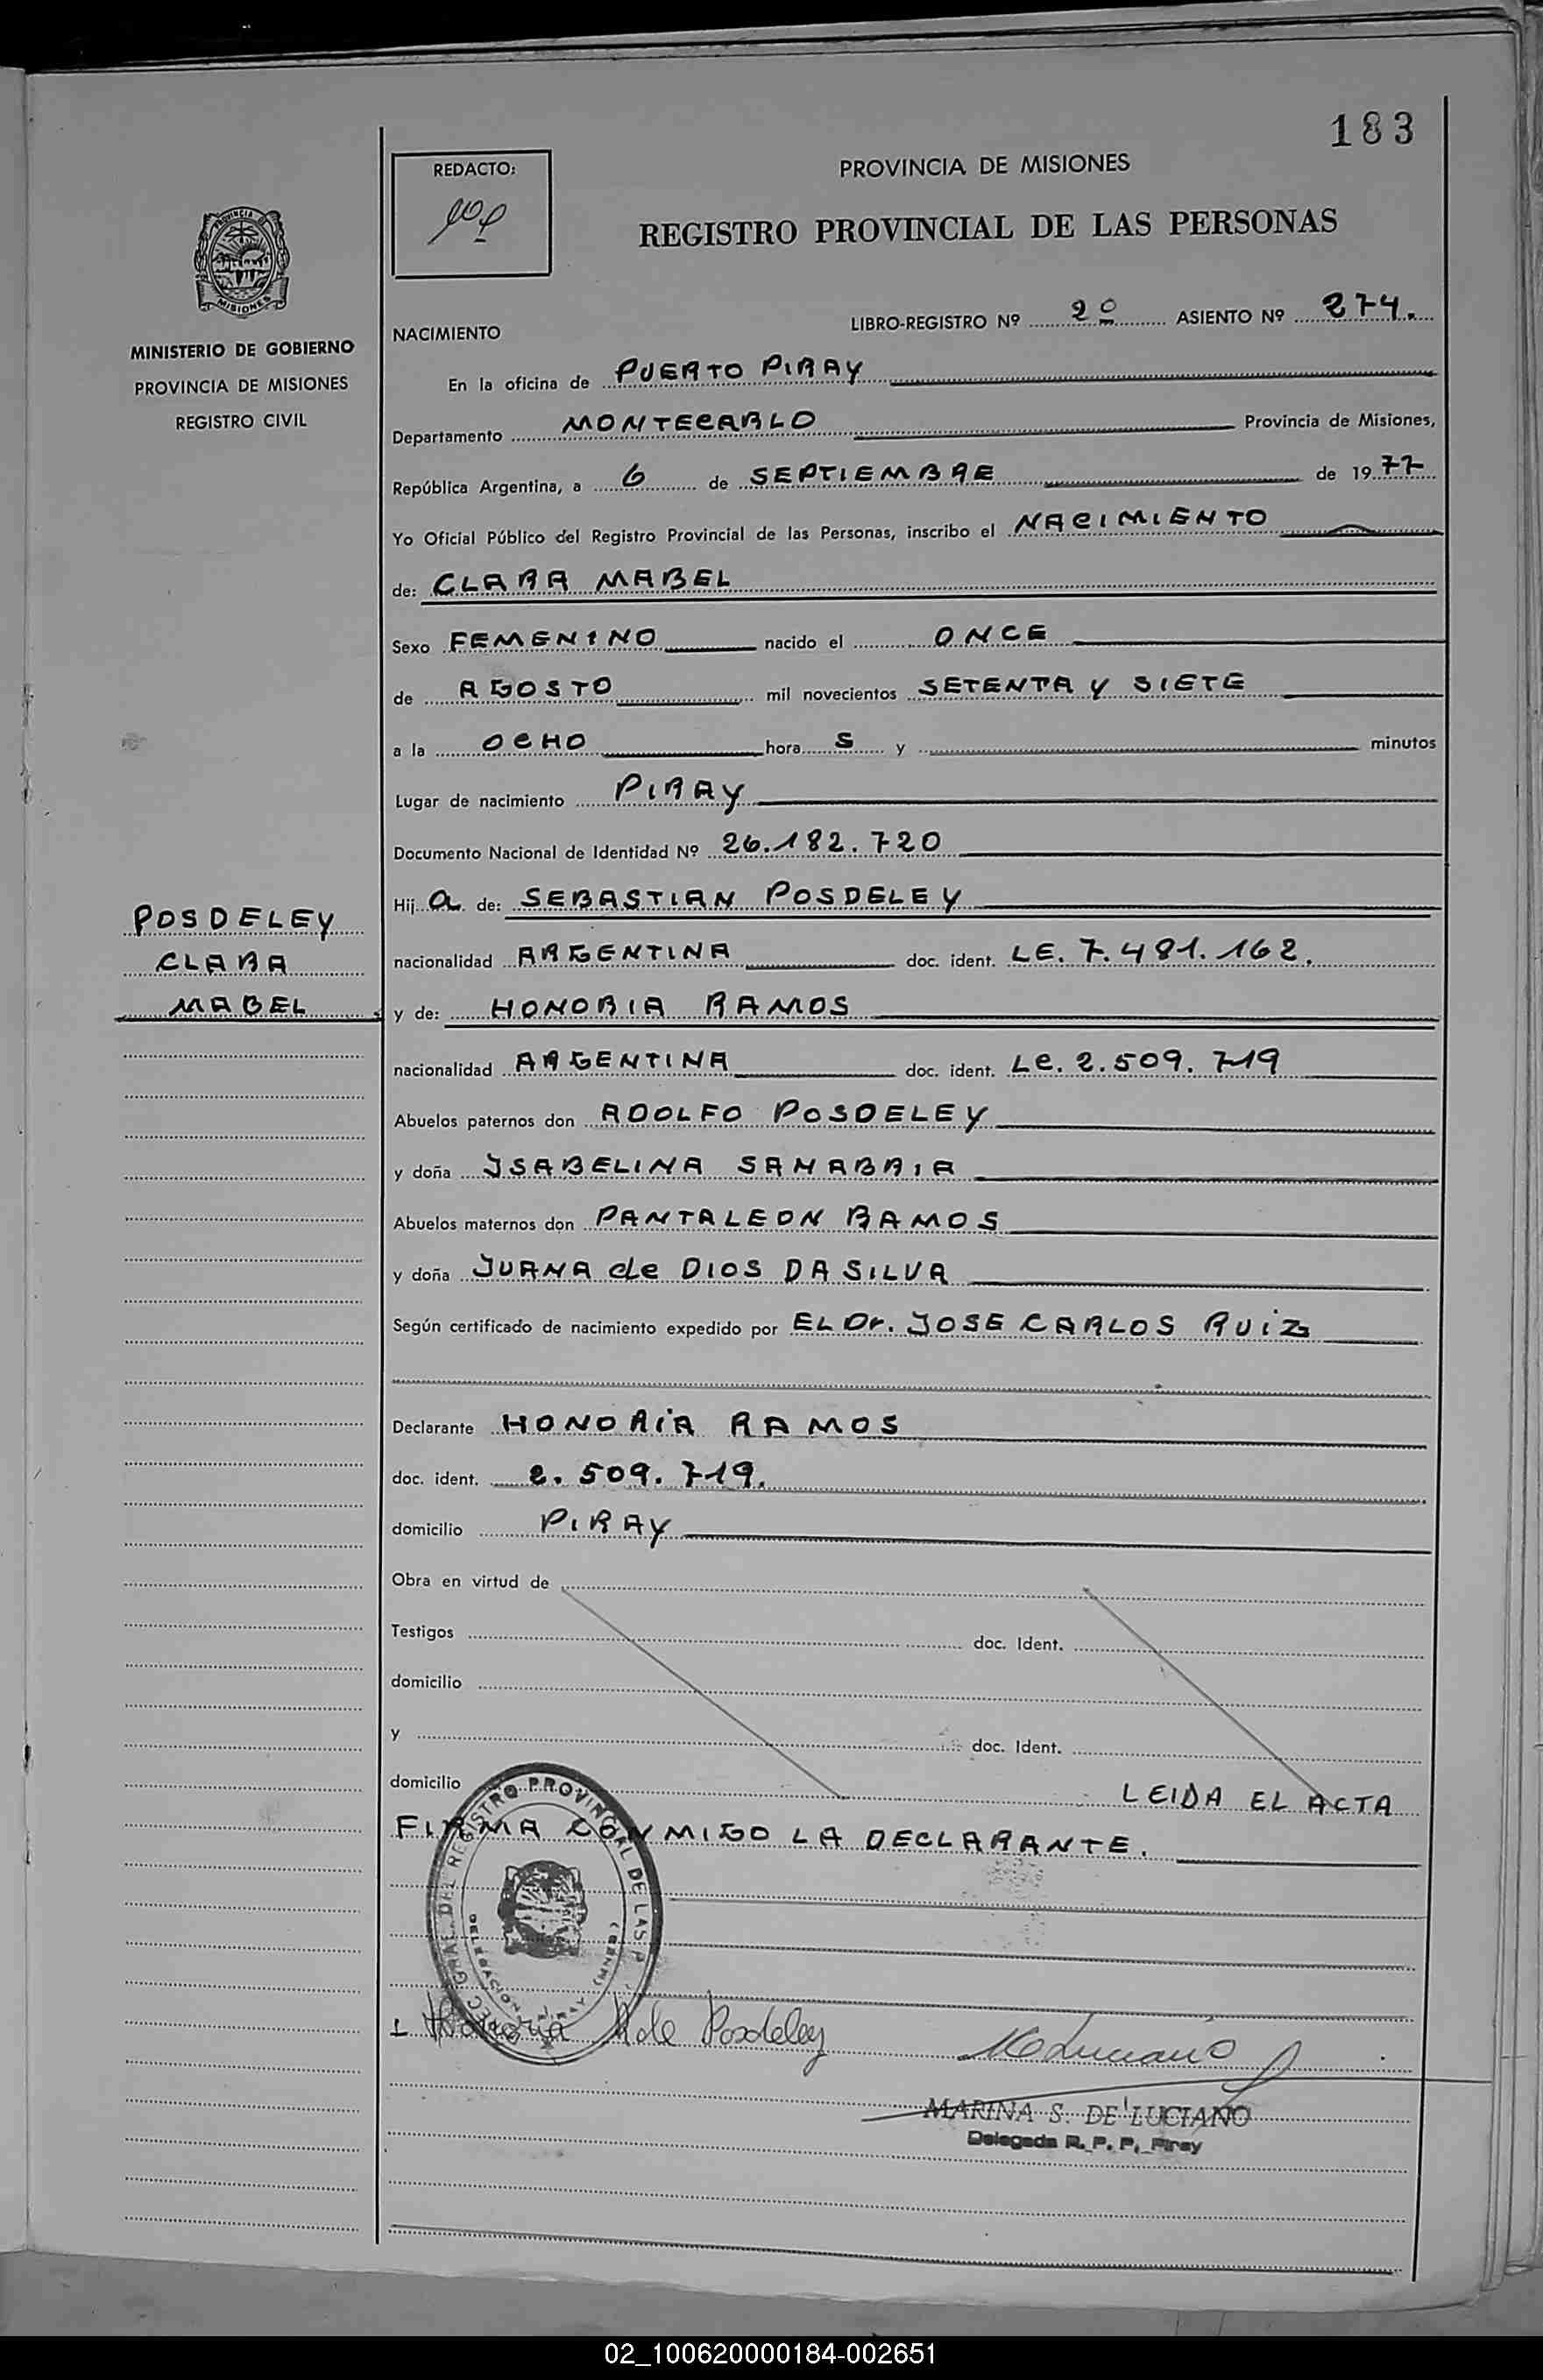 183
REDACTO:
PROVINCIA DE MISIONES
REGISTRO PROVINCIAL DE LAS PERSONAS
MISIONES
MINISTERIO DE GOBIERNO
PROVINCIA DE MISIONES
REGISTRO CIVIL
NACIMIENTO
LIBRO-REGISTRO Nº 2º ASIENTO Nº 274.
En la oficina de PUERTO PIRAY
Departamento MONTECARLO Provincia de Misiones,
República Argentina, a 6 de SEPTIEMBRE de 1977
Yo Oficial Público del Registro Provincial de las Personas, inscribo el NACIMIENTO
de: CLARA MABEL
Sexo FEMENINO nacido el ONCE
de AGOSTO mil novecientos SETENTA Y SIETE
a la OCHO hora S y minutos
Lugar de nacimiento PIRAY
Documento Nacional de Identidad Nº 26.182.720
POSDELEY
CLARA
MABEL
Hij a de: SEBASTIAN POSDELEY
nacionalidad ARGENTINA doc. ident. LE. 7.481.162.
y de: HONORIA RAMOS
nacionalidad ARGENTINA doc. ident. LC. 2.509.719
Abuelos paternos don ADOLFO POSDELEY
y doña YSABELINA SANABRIA
Abuelos maternos don PANTALEON RAMOS
y doña JUANA de DIOS DA SILVA
Según certificado de nacimiento expedido por EL Dr. JOSE CARLOS RUIZ
Declarante HONORIA RAMOS
doc. ident. 2.509.719.
domicilio PIRAY
Obra en virtud de
Testigos doc. Ident.
domicilio
y doc. Ident.
domicilio LEIDA EL ACTA
FIRMA CONMIGO LA DECLARANTE.
REGISTRO PROVINCIAL DE LAS P
DELEGACION PIRAY (MNES)
Honoria R de Posdeley
MARINA S. DE LUCIANO
Delegada R. P. P. Piray
02_100620000184-002651